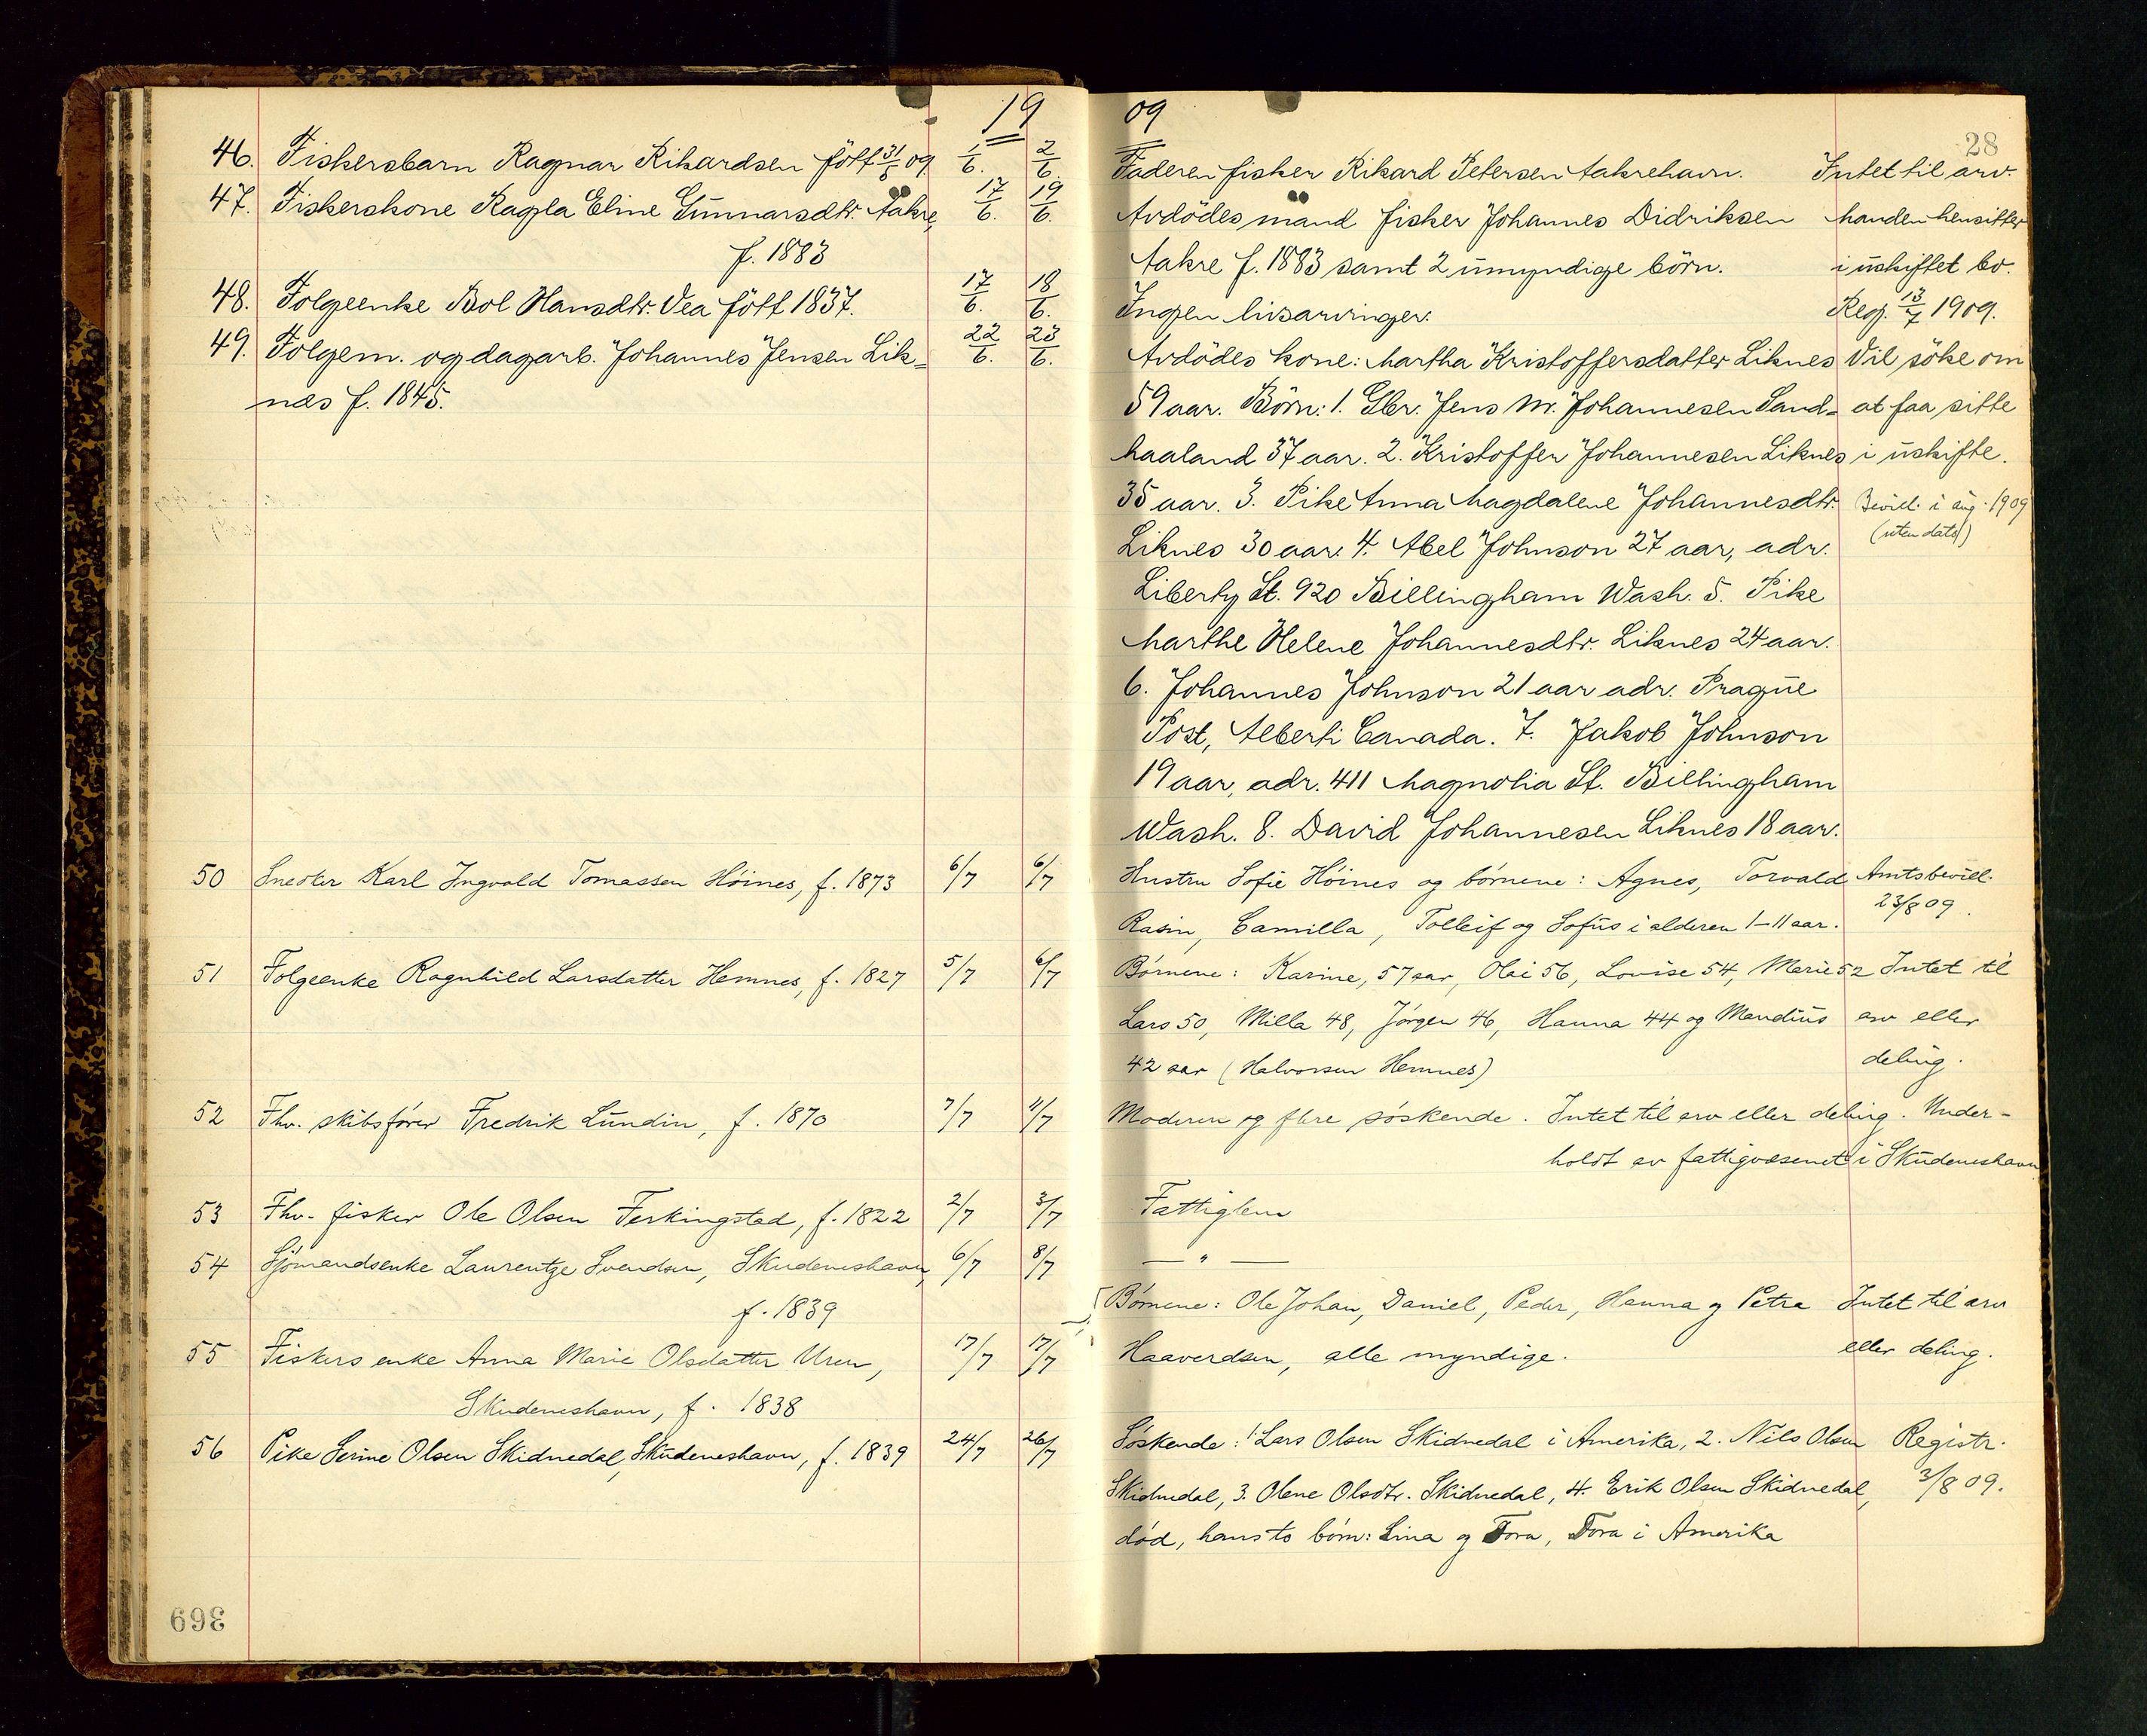 19
46. Fiskersbarn Ragnar Rikardsen fött 31/5 09. 1/6. 2/6.
47. Fiskerskone Ragla Eline Gunnarsdtr. Aakre, 17/6. 19/6.
f. 1883
48. Folgeenke Bol Hansdtr. Vea fött 1837. 17/6. 18/6.
49. Folgem. og dagarb. Johannes Jensen Lik= 22/6. 23/6.
nes f. 1845.
50 Snedker Karl Ingvald Tomassen Höines, f. 1873 6/7 6/7
51 Folgeenke Ragnhild Larsdatter Hemnes, f. 1827 5/7 6/7
52 Fhv. skibsfører Fredrik Lundin, f. 1870 7/7 11/7
53 Fhv. fisker Ole Olsen Ferkingstad, f. 1822 2/7 3/7
54 Sjømandsenke Laurentze Svendsen, Skudeneshavn, 6/7 8/7
f. 1839
55 Fiskers enke Anna Marie Olsdatter Uren, 17/7 17/7
Skudeneshavn, f. 1838
56 Pike Serine Olsen Skidnedal, Skudeneshavn, f. 1839 24/7 26/7
369
09
28
Faderen fisker Rikard Petersen Aakrehavn. Intet til arv.
Avdödes mand fisker Johannes Didriksen Manden hensitter
Aakre f. 1883 samt 2 umyndige börn. i uskiftet bo.
Ingen livsarvinger. Reg. 13/7 1909.
Avdödes kone: Martha Kristoffersdatter Liknes Vil söke om
59 aar. Börn: 1. Gbr. Jens M. Johannesen Sand= at faa sitte
haaland 37 aar. 2. Kristoffer Johannesen Liknes i uskifte.
35 aar. 3. Pike Anna Magdalene Johannesdtr. Bevill. i aug. 1909
Liknes 30 aar. 4. Abel Johnson 27 aar, adr. (uten dato)
Liberty St. 920 Billingham Wash. 5. Pike
Marthe Helene Johannesdtr. Liknes 24 aar.
6. Johannes Johnson 21 aar adr. Prague
Post, Alberti Canada. 7. Jakob Johnson
19 aar, adr. 411 Magnolia St. Billingham
Wash. 8. David Johannesen Liknes 18 aar.
Hustru Sofie Höines og börnene: Agnes, Torvald Amtsbevill.
Rasin, Camilla, Tolleif og Sofus i alderen 1-11 aar. 23/8 09.
Börnene: Karine, 57 aar, Olai 56, Lovise 54, Marie 52 Intet til
Lars 50, Milla 48, Jörgen 46, Hanna 44 og Mandius arv eller
42 aar (Halvorsen Hemnes) deling.
Moderen og flere söskende. Intet til arv eller deling. Under-
holdt av fattigvæsenet i Skudeneshavn
Fattiglem
— " —
Børnene: Ole Johan, Daniel, Peder, Hanna og Petra Intet til arv
Haaverdsen, alle myndige. eller deling.
Söskende: 1. Lars Olsen Skidnedal i Amerika, 2. Nils Olsen Registr.
Skidnedal, 3. Olene Olsdtr. Skidnedal, 4. Erik Olsen Skidnedal, 3/8 09.
död, hans to börn: Lina og Tora, Tora i Amerika